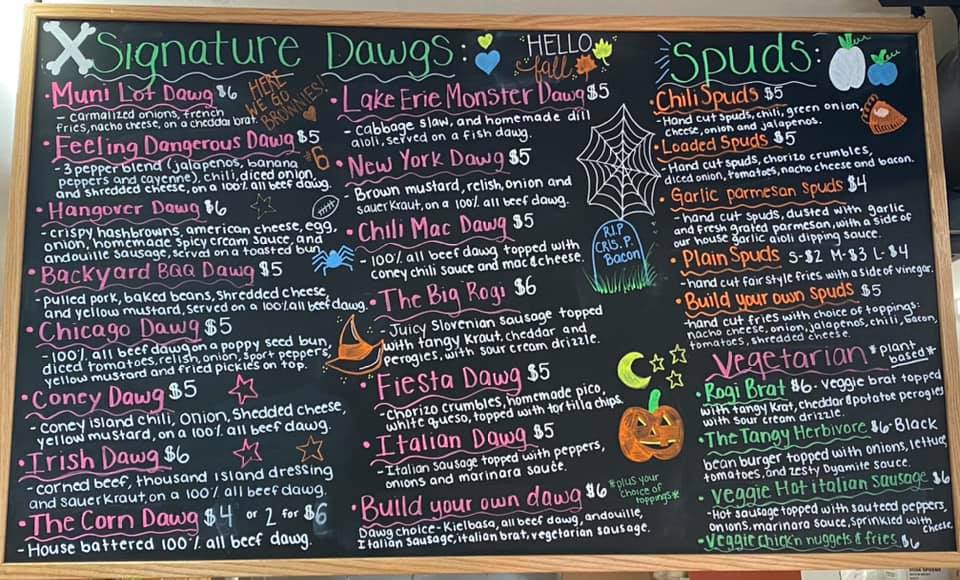 Signature Dawgs:
HELLO
fall
HERE
WE GO
BROWNIES!
• Muni Lot Dawg $6
- carmalized onions, french
fries, nacho cheese, on a chedda brat.
• Feeling Dangerous Dawg $5
$6
- 3 pepper blend (jalapenos, banana
peppers and cayenne), chili, diced onion,
and shredded cheese, on a 100% all beef dawg.
• Hangover Dawg $6
- crispy hashbrowns, american cheese, egg,
onion, homemade spicy cream sauce, and
andouille sausage, served on a toasted bun.
• Backyard BQQ Dawg $5
- pulled pork, baked beans, shredded cheese,
and yellow mustard, served on a 100% all beef dawg.
• Chicago Dawg $5
- 100% all beef dawg on a poppy seed bun,
diced tomatoes, relish, onion, sport peppers,
yellow mustard and fried pickles on top.
• Coney Dawg $5
- coney island chili, onion, shedded cheese,
yellow mustard, on a 100% all beef dawg.
• Irish Dawg $6
- corned beef, thousand island dressing
and sauerkraut, on a 100% all beef dawg.
• The Corn Dawg $4 or 2 for $6
- House battered 100% all beef dawg.
• Lake Erie Monster Dawg $5
- cabbage slaw, and homemade dill
aioli, served on a fish dawg.
• New York Dawg $5
- Brown mustard, relish, onion and
sauerkraut, on a 100% all beef dawg.
• Chili Mac Dawg $5
- 100% all beef dawg topped with
coney chili sauce and mac & cheese.
• The Big Rogi $6
- Juicy Slovenian sausage topped
with tangy kraut, cheddar and
perogies, with sour cream drizzle.
• Fiesta Dawg $5
- Chorizo crumbles, homemade pico,
white queso, topped with tortilla chips.
• Italian Dawg $5
- Italian sausage topped with peppers,
onions and marinara sauce.
• Build your own dawg $6 *plus your
choice of
toppings*
Dawg choice - Kielbasa, all beef dawg, andouille,
Italian Sausage, italian brat, vegetarian sausage.
R.I.P
CRIS. P.
Bacon
Spuds:
• Chili Spuds $5
- Hand cut spuds, chili, green onion,
cheese, onion and jalapenos.
• Loaded Spuds $5
- Hand cut spuds, chorizo crumbles,
diced onion, tomatoes, nacho cheese and bacon.
• Garlic parmesan spuds $4
- hand cut spuds, dusted with garlic
and fresh grated parmesan, with a side of
our house garlic aioli dipping sauce.
• Plain Spuds S-$2 M-$3 L-$4
- hand cut fair style fries with a side of vinegar.
• Build your own spuds $5
- hand cut fries with choice of toppings:
nacho cheese, onion, jalapenos, chili, bacon,
tomatoes, shredded cheese.
Vegetarian *plant
based*
• Rogi Brat $6 - veggie brat topped
with tangy Krat, cheddar & potatoe perogies
with sour cream drizzle.
• The Tangy Herbivore $6 - Black
bean burger topped with onions, lettuce,
tomatoes, and zesty Dyamite sauce.
• Veggie Hot italian sausage $6
- Hot sausage topped with sauteed peppers,
onions, marinara sauce, sprinkled with
cheese.
• Veggie chick'n nuggets & fries $6